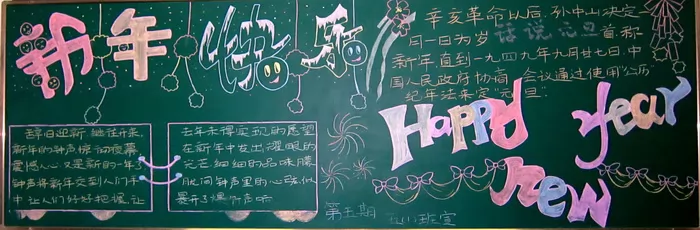 新年快乐
辞旧迎新,继往开来,
新年的钟声惊动夜幕
震憾人心 又是新的一年了
钟声将新年交到人们手
中让人们好好把握,让
去年未得实现的愿望
在新年中发出耀眼的
光芒细细的品味朦
胧间钟声里的心弦似
第五期 五(1)班宣
辛亥革命以后,孙中山决定
月一日为岁 话说元旦 首称
新年直到一九四九年九月廿七日,中
国人民政府协商 会议通过使用"公历
纪年法来定"元旦"
Happy year
new